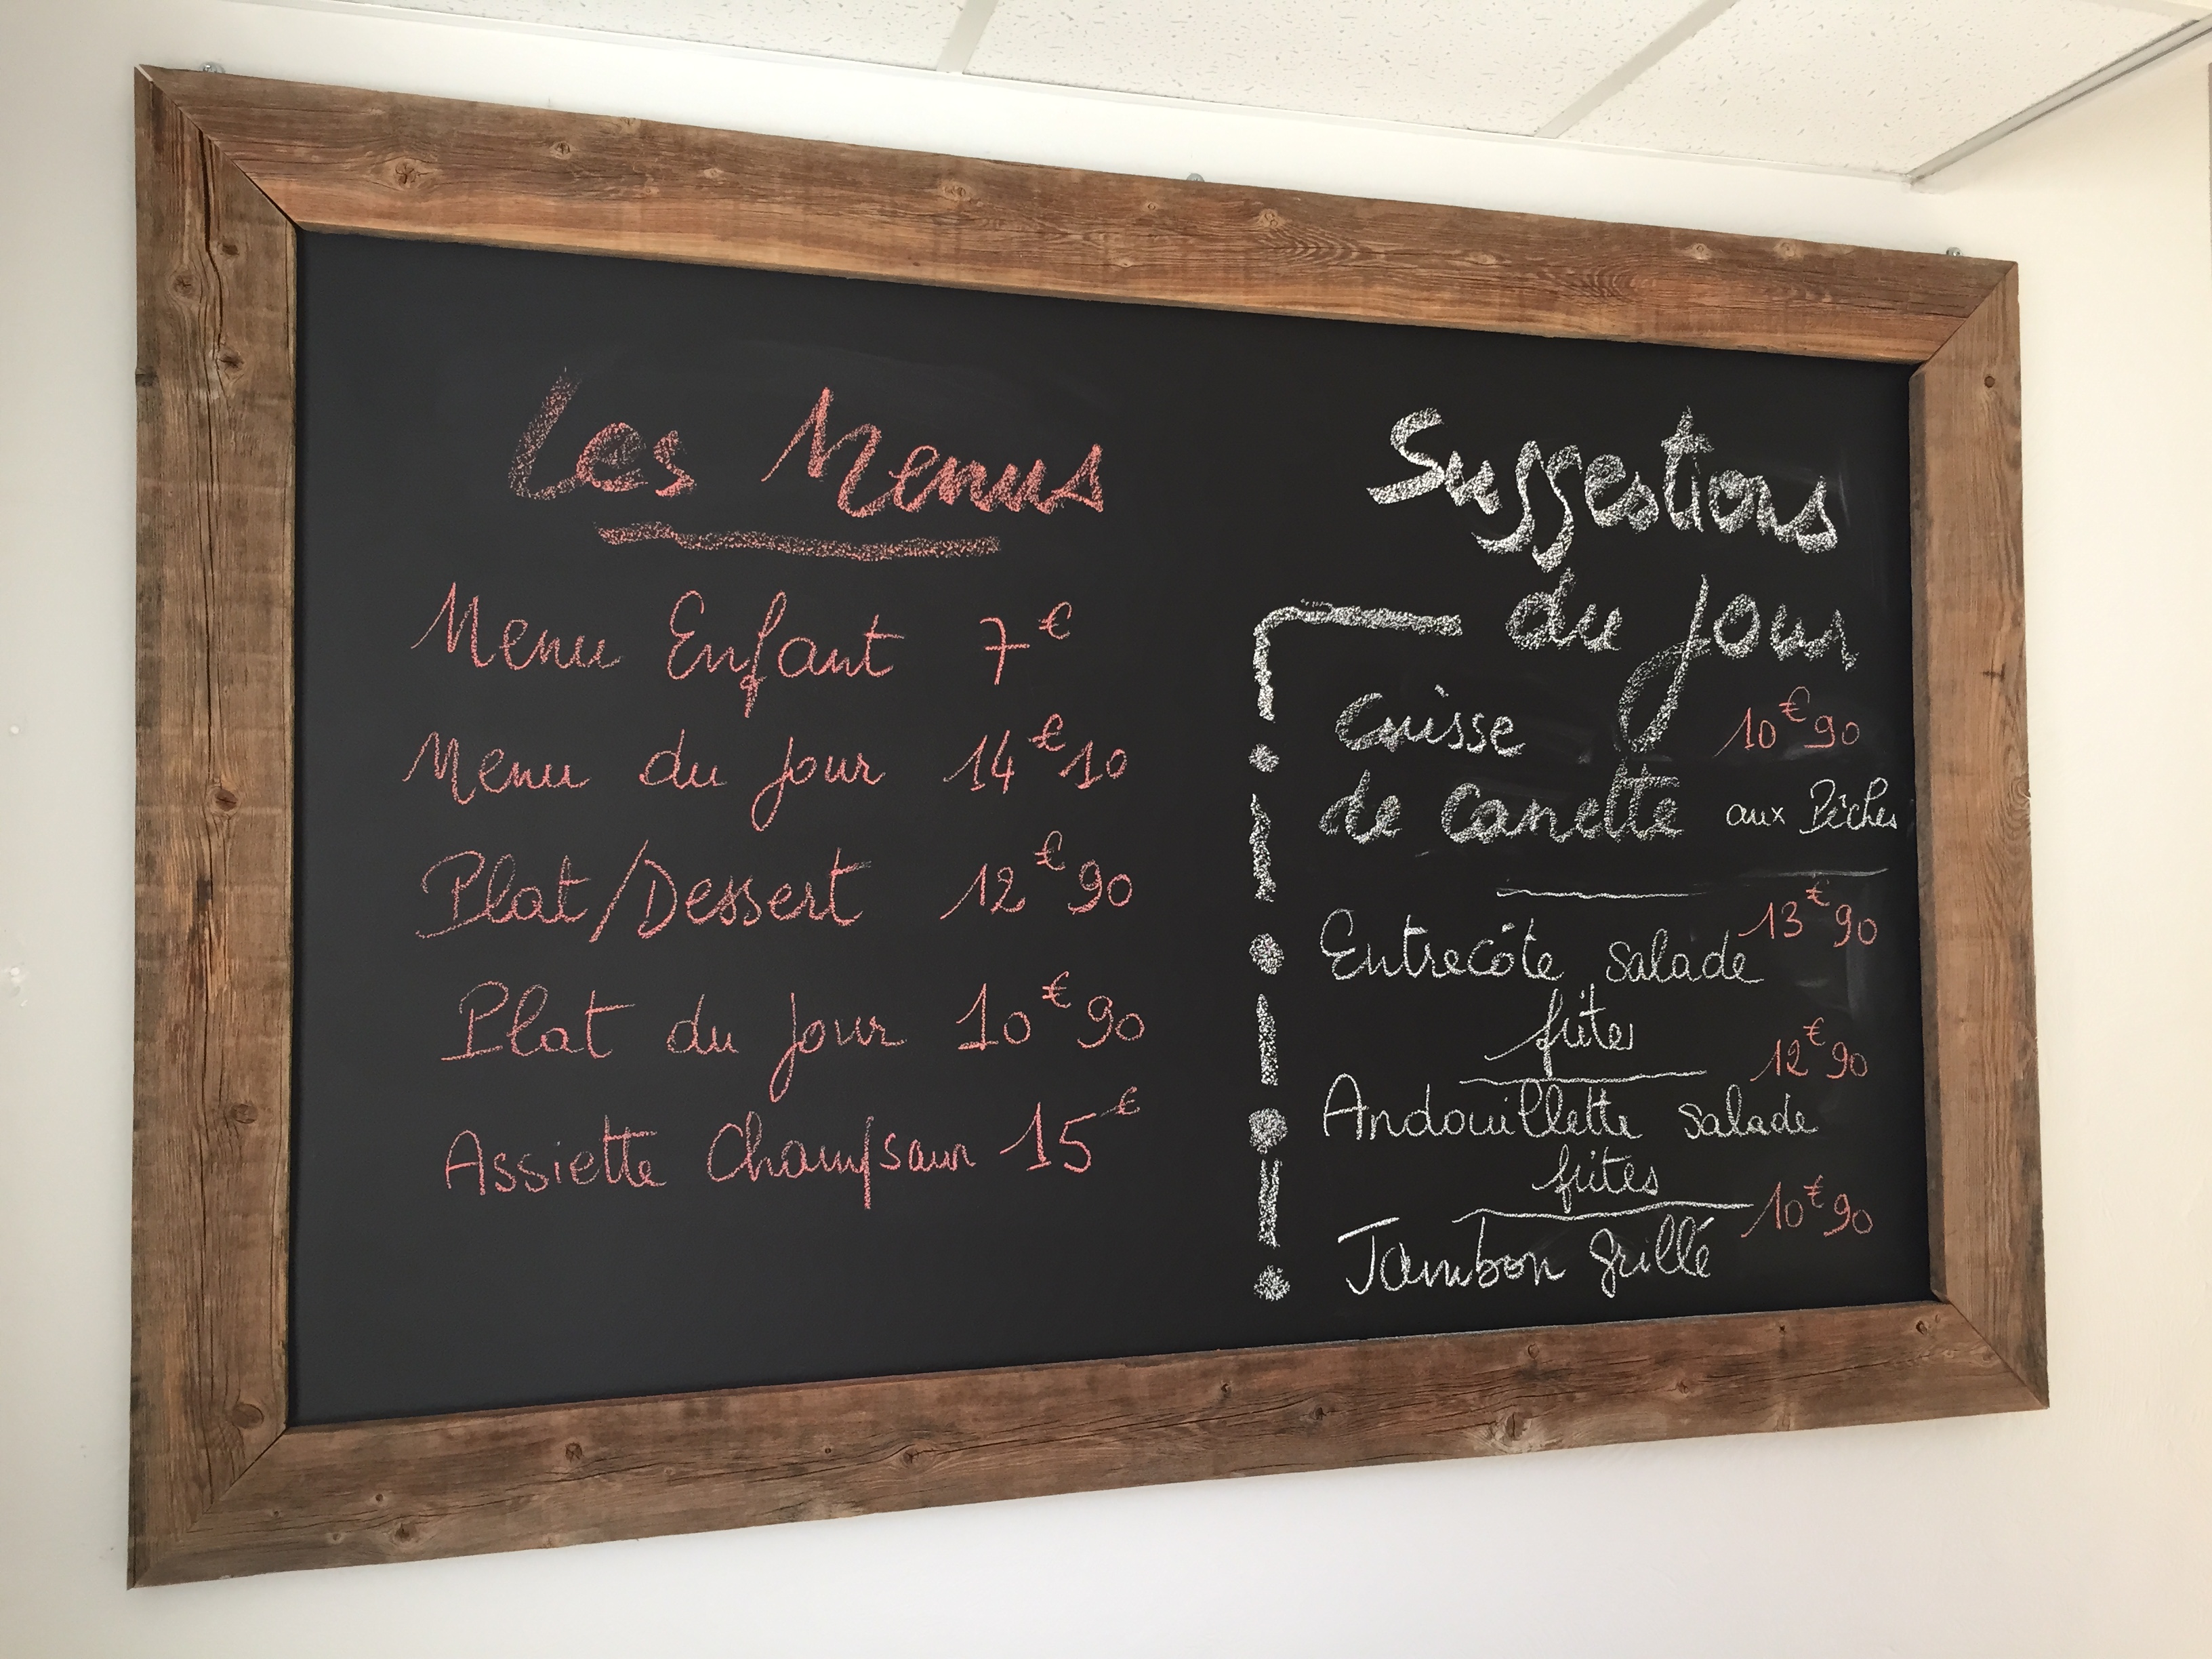 Les Menus
Menu Enfant 7€
Menu du jour 14€10
Plat/Dessert 12€90
Plat du jour 10€90
Assiette Champsaur 15€
Suggestions
du jour
Cuisse 10€90
de Canette aux Pêches
13€90
Entrecôte salade
frites
12€90
Andouillette salade
frites
10€90
Jambon grillé